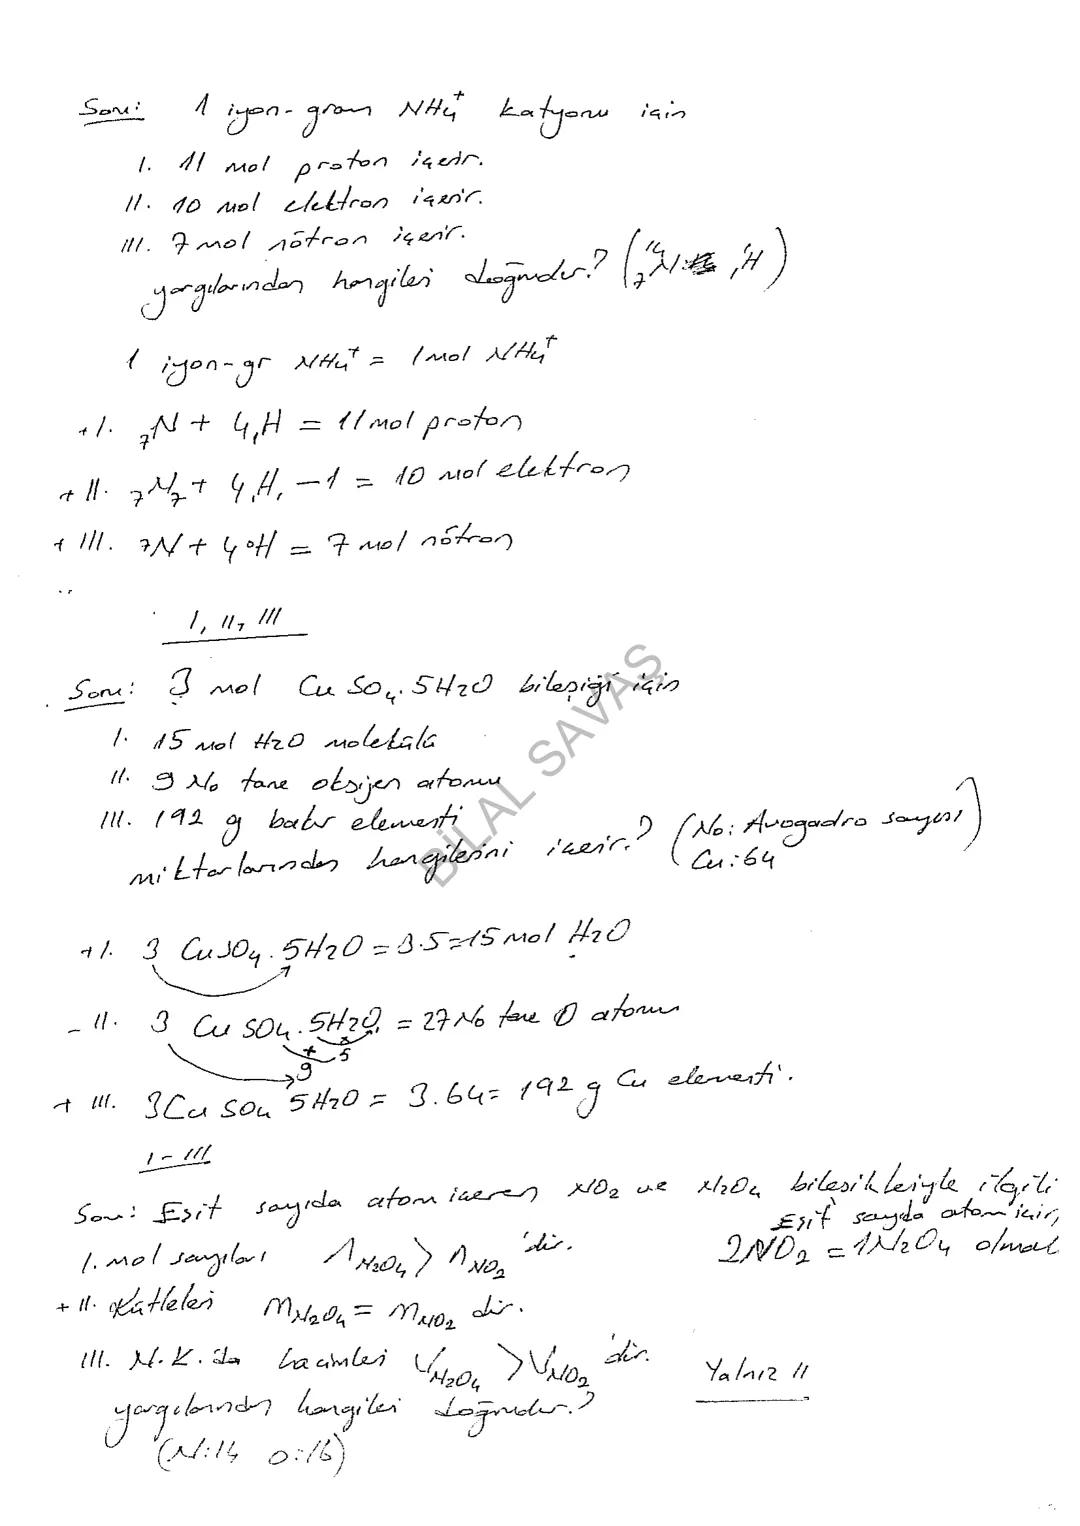 Soru: 1 iyon-gram NH4+ katyonu için
I. 11 mol proton içerir.
II. 10 mol elektron içerir.
III. 7 mol nötron içerir.
yargılarından hangileri doğrudur? (¹⁴₇N , ¹₁H)
1 iyon-gr NH4+ = 1 mol NH4+
+I. ₇N + 4₁H = 11 mol proton
+II. ₇N₇ + 4₁H₁ - 1 = 10 mol elektron
+III. 7N + 4 0H = 7 mol nötron
I, II, III
Soru: 3 mol CuSO4.5H2O bileşiği için
I. 15 mol H2O molekülü
II. 9 No tane oksijen atomu
III. 192 g bakır elementi
miktarlarından hangilerini içerir? (No: Avogadro sayısı
Cu: 64)
BİLAL SAVAŞ
+I. 3 CuSO4.5H2O = 3.5=15 mol H2O
-II. 3 CuSO4.5H2O = 27 No tane O atomu
+ x 5
9
+III. 3CuSO4 5H2O = 3.64= 192 g Cu elementi.
I-III
Soru: Eşit sayıda atom içeren NO2 ve N2O4 bileşikleriyle ilgili
Eşit sayıda atom için,
I. mol sayıları nN2O4 > nNO2 'dir.
2NO2 = 1N2O4 olmalı
+II. Kütleleri mN2O4 = mNO2 dir.
III. N.K.da hacimleri VN2O4 > VNO2 'dir.
Yalnız II
yargılarından hangileri doğrudur?
(N:14 O:16)